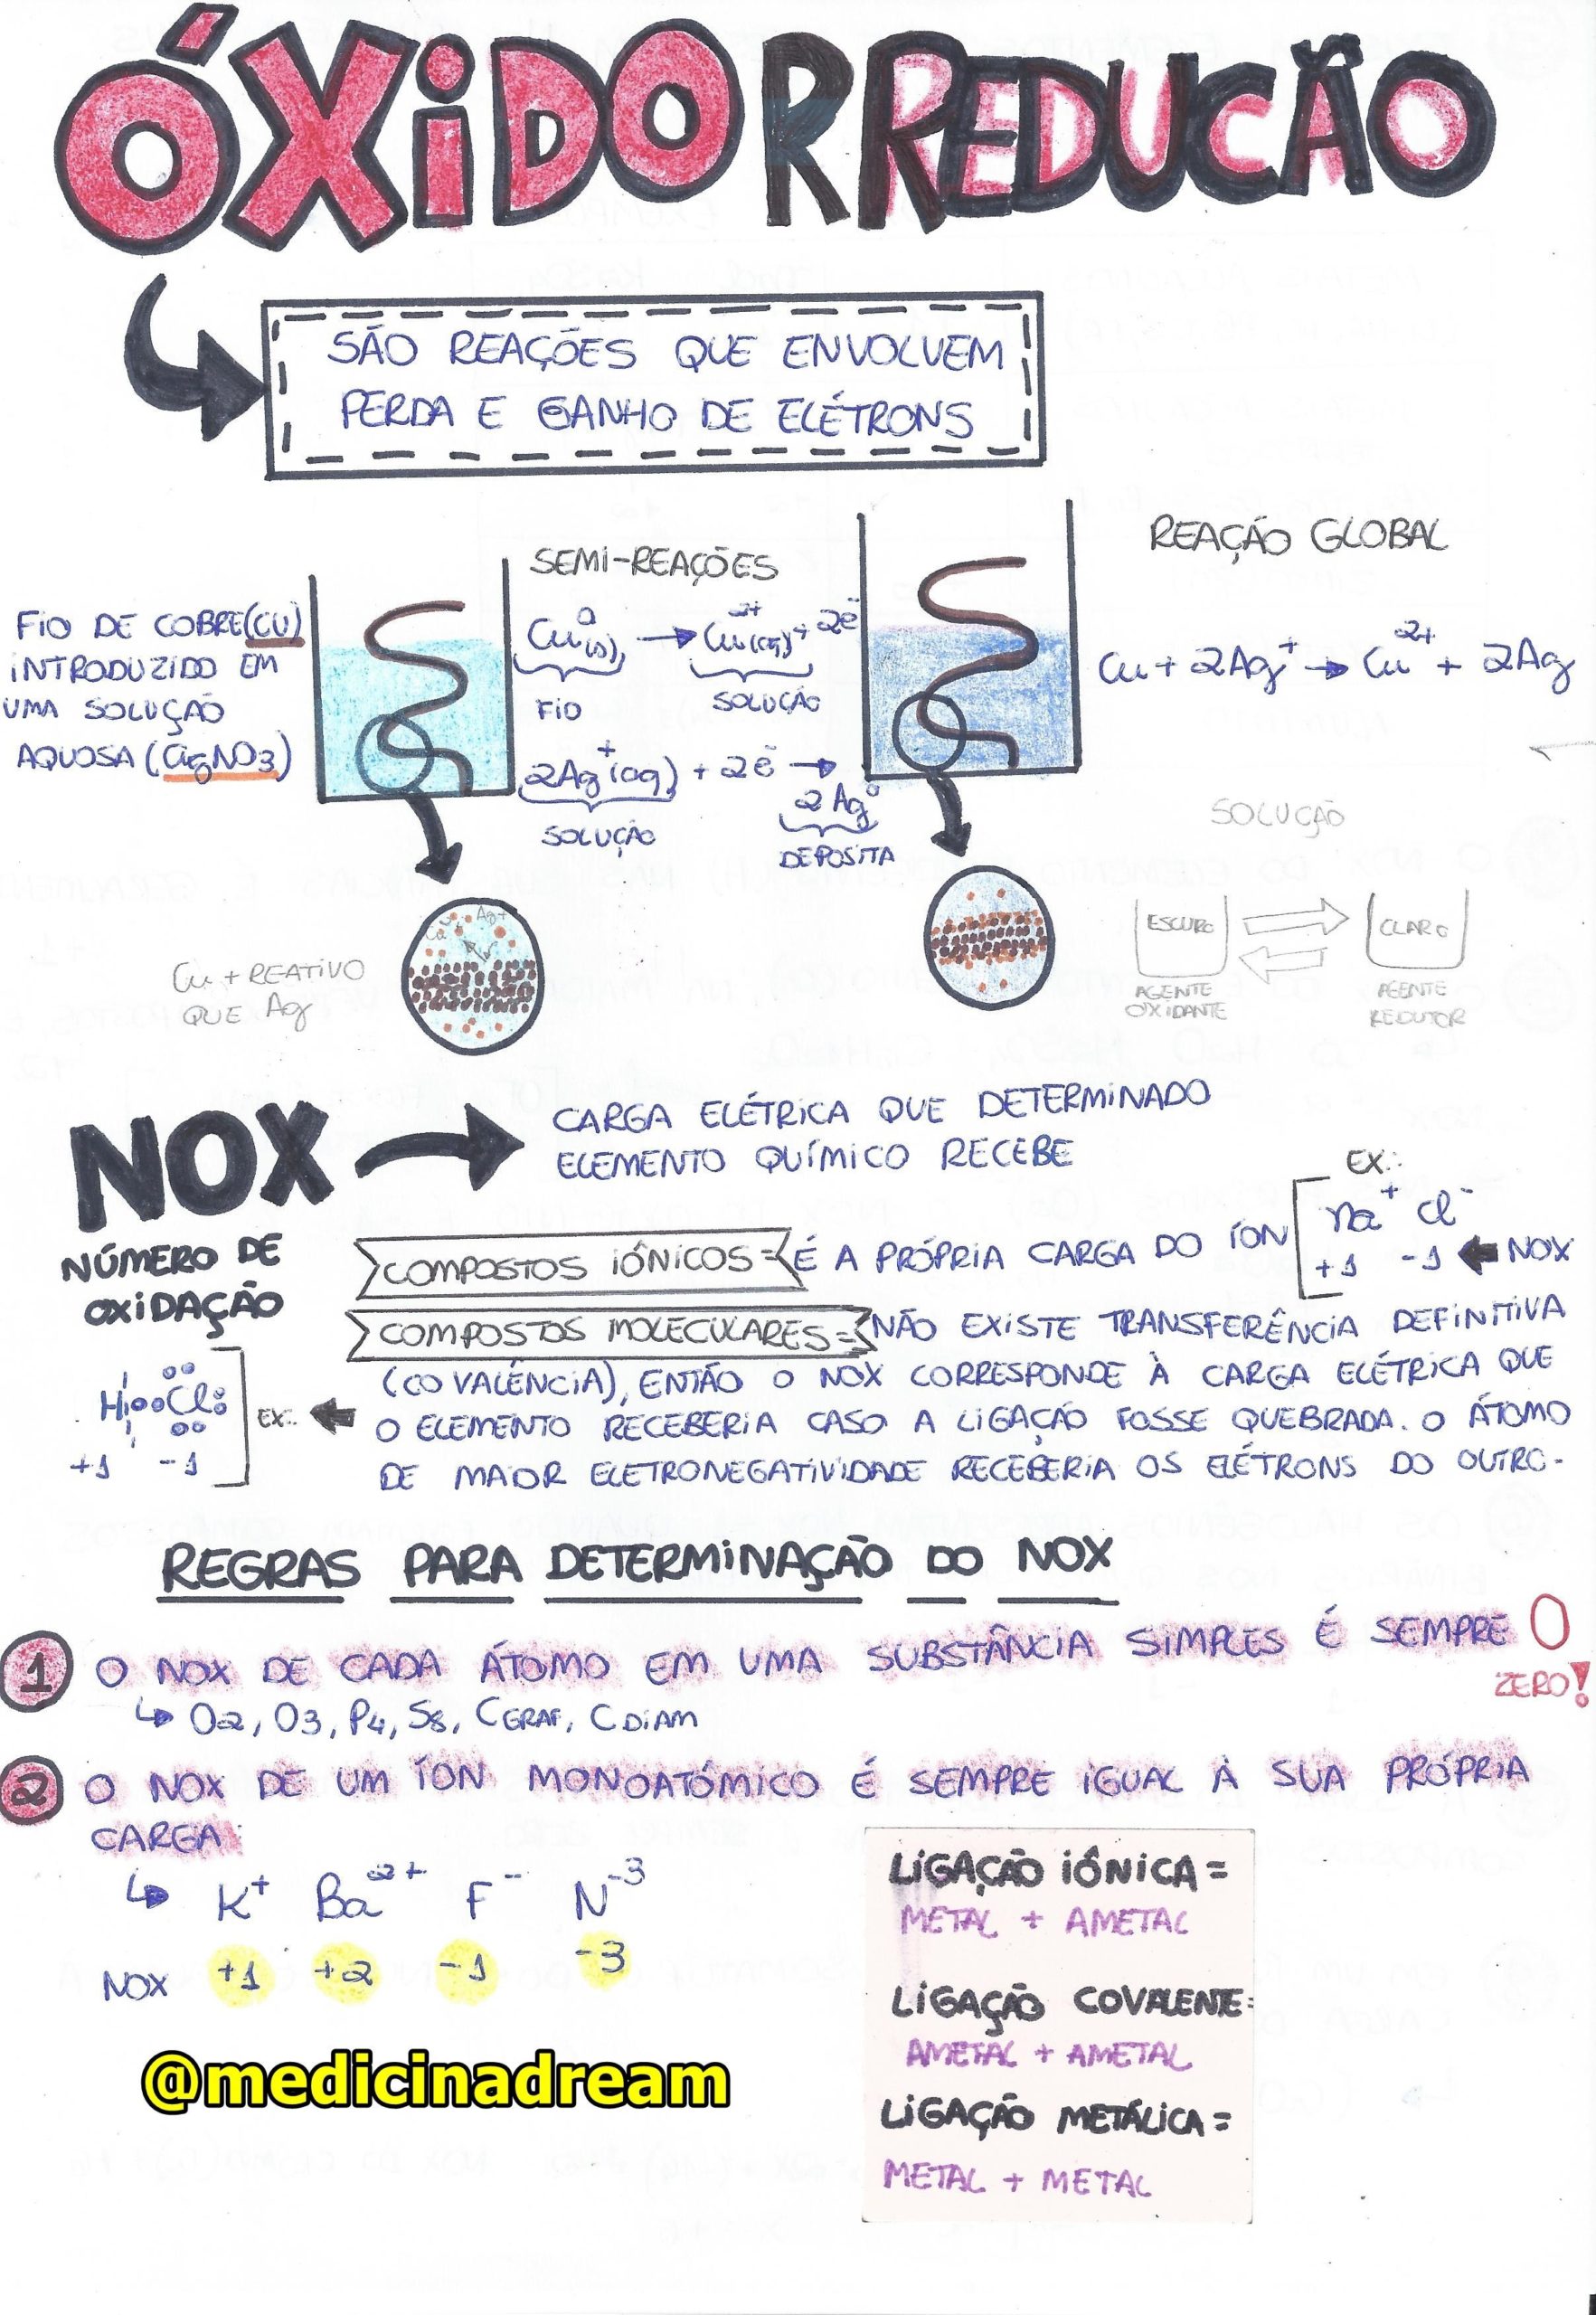 ÓXIDORREDUÇÃO
SÃO REAÇÕES QUE ENVOLVEM
PERDA E GANHO DE ELÉTRONS
FIO DE COBRE(CU)
INTRODUZIDO EM
UMA SOLUÇÃO
AQUOSA (AgNO3)
SEMI-REAÇÕES
Cu⁰(s) → Cu²⁺(aq) + 2e⁻
FIO SOLUÇÃO
2Ag⁺(aq) + 2e⁻ →
2Ag⁰
SOLUÇÃO
DEPOSITA
REAÇÃO GLOBAL
Cu + 2Ag⁺ → Cu²⁺ + 2Ag
Cu + REATIVO
QUE Ag
Ag+
SOLUÇÃO
ESCURO
CLARO
AGENTE
OXIDANTE
AGENTE
REDUTOR
NOX
CARGA ELÉTRICA QUE DETERMINADO
ELEMENTO QUÍMICO RECEBE
NÚMERO DE
OXIDAÇÃO
COMPOSTOS IÔNICOS = É A PRÓPRIA CARGA DO ÍON
EX.:
Na⁺ Cl⁻
+1 -1 NOX
COMPOSTOS MOLECULARES = NÃO EXISTE TRANSFERÊNCIA DEFINITIVA
(COVALÊNCIA), ENTÃO O NOX CORRESPONDE À CARGA ELÉTRICA QUE
O ELEMENTO RECEBERIA CASO A LIGAÇÃO FOSSE QUEBRADA. O ÁTOMO
DE MAIOR ELETRONEGATIVIDADE RECEBERIA OS ELÉTRONS DO OUTRO.
H Cl
EX.:
+1 -1
REGRAS PARA DETERMINAÇÃO DO NOX
1 O NOX DE CADA ÁTOMO EM UMA SUBSTÂNCIA SIMPLES É SEMPRE 0
ZERO!
↳ O2, O3, P4, S8, CGRAF, CDIAM
2 O NOX DE UM ÍON MONOATÓMICO É SEMPRE IGUAL À SUA PRÓPRIA
CARGA:
↳ K⁺ Ba²⁺ F⁻ N⁻³
NOX +1 +2 -1 -3
LIGAÇÃO IÔNICA =
METAL + AMETAL
LIGAÇÃO COVALENTE=
AMETAL + AMETAL
LIGAÇÃO METÁLICA =
METAL + METAL
@medicinadream